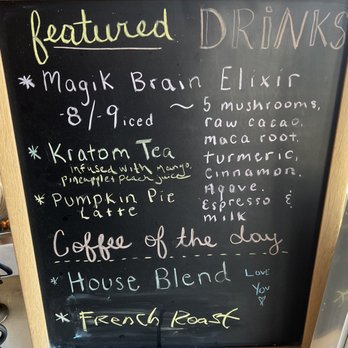 featured DRiNKS
* Magik Brain Elixir
-8/-9 iced ~ 5 mushrooms,
raw cacao,
maca root,
turmeric,
Cinnamon,
Agave,
Espresso &
milk
* Kratom Tea
infused with mango,
pineapple & peach juice
* Pumpkin Pie
Latte
Coffee of the day
* House Blend
Love
You
* French Roast